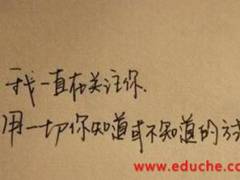 我一直在关注你.
用一切你知道或不知道的方式
www.eduche.com